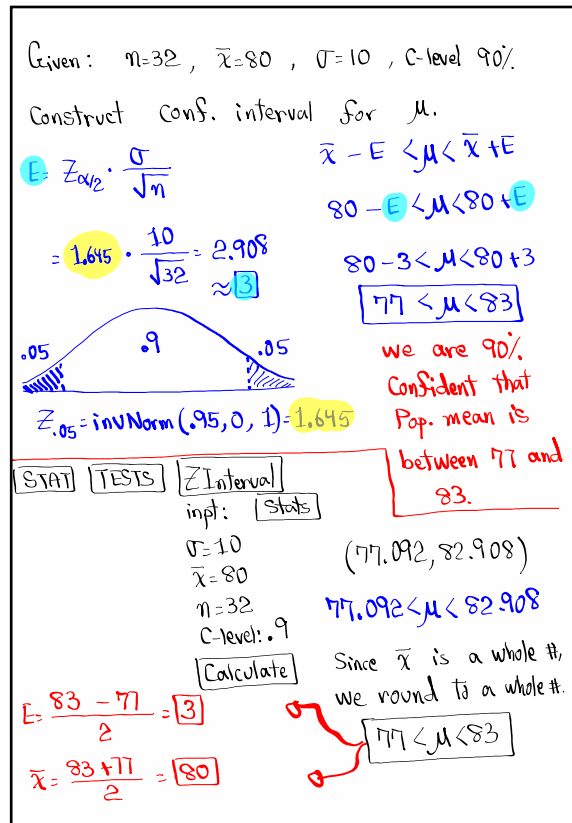 Given: n=32, x̄=80, σ=10, C-level 90%.
Construct conf. interval for μ.
E = Z_{α/2} · σ/√n
= 1.645 · 10/√32 = 2.908
≈ 3
.05 .9 .05
Z_{.05} = invNorm(.95, 0, 1) = 1.645
x̄ - E < μ < x̄ + E
80 - E < μ < 80 + E
80 - 3 < μ < 80 + 3
77 < μ < 83
we are 90%
Confident that
Pop. mean is
between 77 and
83.
STAT TESTS Z Interval
inpt: Stats
σ=10
x̄=80
n=32
C-level: .9
Calculate
(77.092, 82.908)
77.092 < μ < 82.908
Since x̄ is a whole #,
we round to a whole #.
77 < μ < 83
E = (83 - 77)/2 = 3
x̄ = (83 + 77)/2 = 80